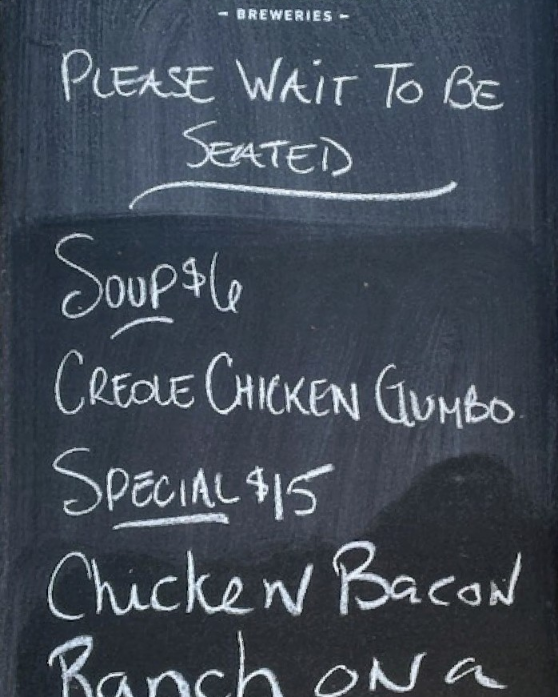 – BREWERIES –
PLEASE WAiT To BE
SEATED
SOUP $6
CREOLE CHICKEN GUMBO
SPECIAL $15
Chicken Bacon
Ranch on a